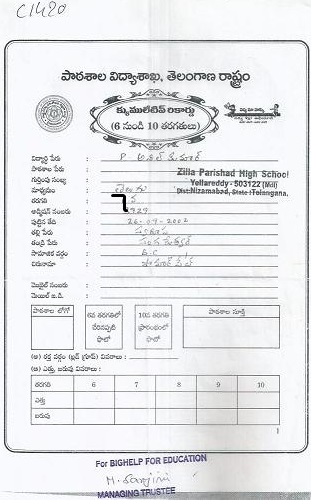 C1420
పాఠశాల విద్యాశాఖ, తెలంగాణ రాష్ట్రం
క్యుములేటివ్ రికార్డు
(6 నుండి 10 తరగతులు)
విద్యార్థి పేరు : P
పాఠశాల పేరు : Zilla Parishad High School
గుర్తింపు సంఖ్య : Yellareddy - 503122 (Mdl)
మాధ్యమం : తెలుగు Dist: Nizamabad, State: Telangana.
తరగతి :
అడ్మిషన్ నంబరు :
పుట్టిన తేది : 26-09-2002
తల్లి పేరు :
తండ్రి పేరు :
సామాజిక వర్గం : B.C
చిరునామా :
మొబైల్ నంబరు :
మెయిల్ ఐ.డి. :
పాఠశాల లోగో
6వ తరగతిలో చేరినప్పటి ఫొటో
10వ తరగతి ప్రారంభంలో ఫొటో
పాఠశాల సూక్తి
(అ) రక్త వర్గం (బ్లడ్ గ్రూప్) వివరాలు :
(ఆ) ఎత్తు, బరువు వివరాలు :
తరగతి 6 7 8 9 10
ఎత్తు
బరువు
1
For BIGHELP FOR EDUCATION
MANAGING TRUSTEE